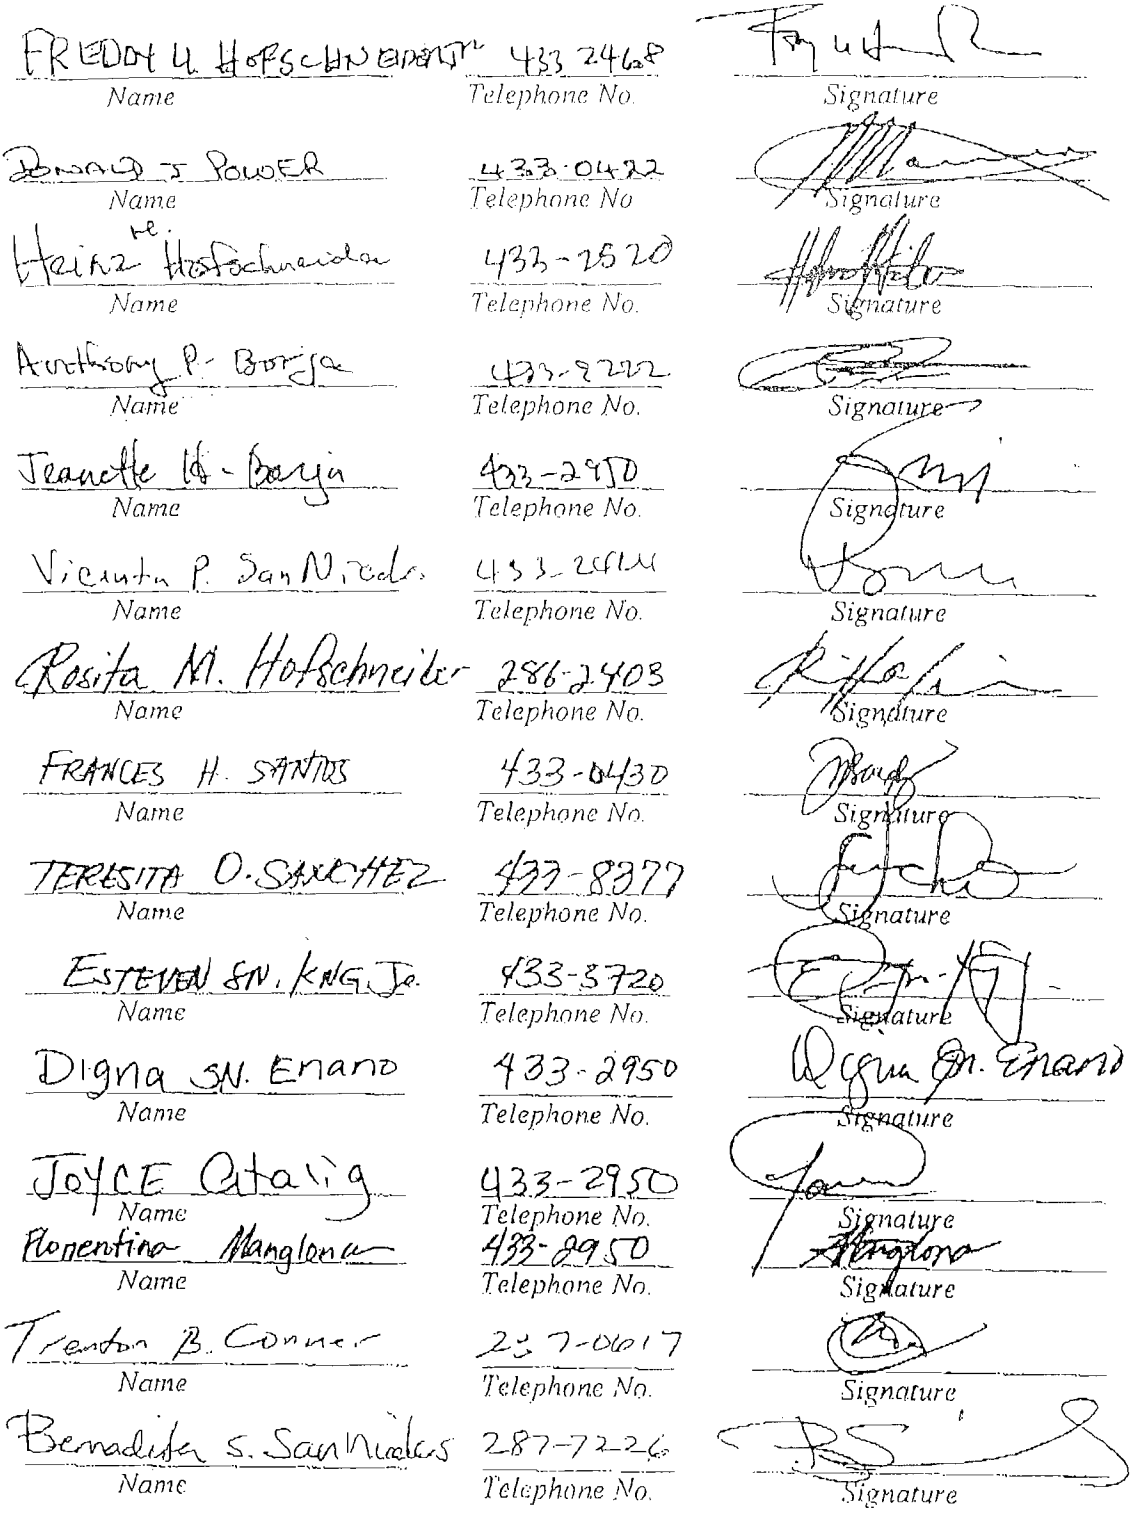 FREDDY U. HOFSCHNEIDER 433 2468
Name Telephone No. Signature
DONALD J POWER 433-0422
Name Telephone No Signature
re.
Heinz Hofschneider 433-2520
Name Telephone No. Signature
Anthony P. Borja 433-9222
Name Telephone No. Signature
Jeanette H. Borja 433-2950
Name Telephone No. Signature
P. San Nicolas 433-
Name Telephone No. Signature
Rosita M. Hofschneider 286-2403
Name Telephone No. Signature
FRANCES H. SANTOS 433-0430
Name Telephone No. Signature
TERESITA O. SANCHEZ 433-8377
Name Telephone No. Signature
ESTEVEN SN. KING, Jr. 433-3720
Name Telephone No. Signature
Digna SN. Enano 433-2950 Digna Sn. Enano
Name Telephone No. Signature
JOYCE Atalig 433-2950
Name Telephone No. Signature
Florentina Manglona 433-2950 Manglona
Name Telephone No. Signature
Trenton B. Conner
Name Telephone No. Signature
Bernadita S. San Nicolas 287-7226
Name Telephone No. Signature